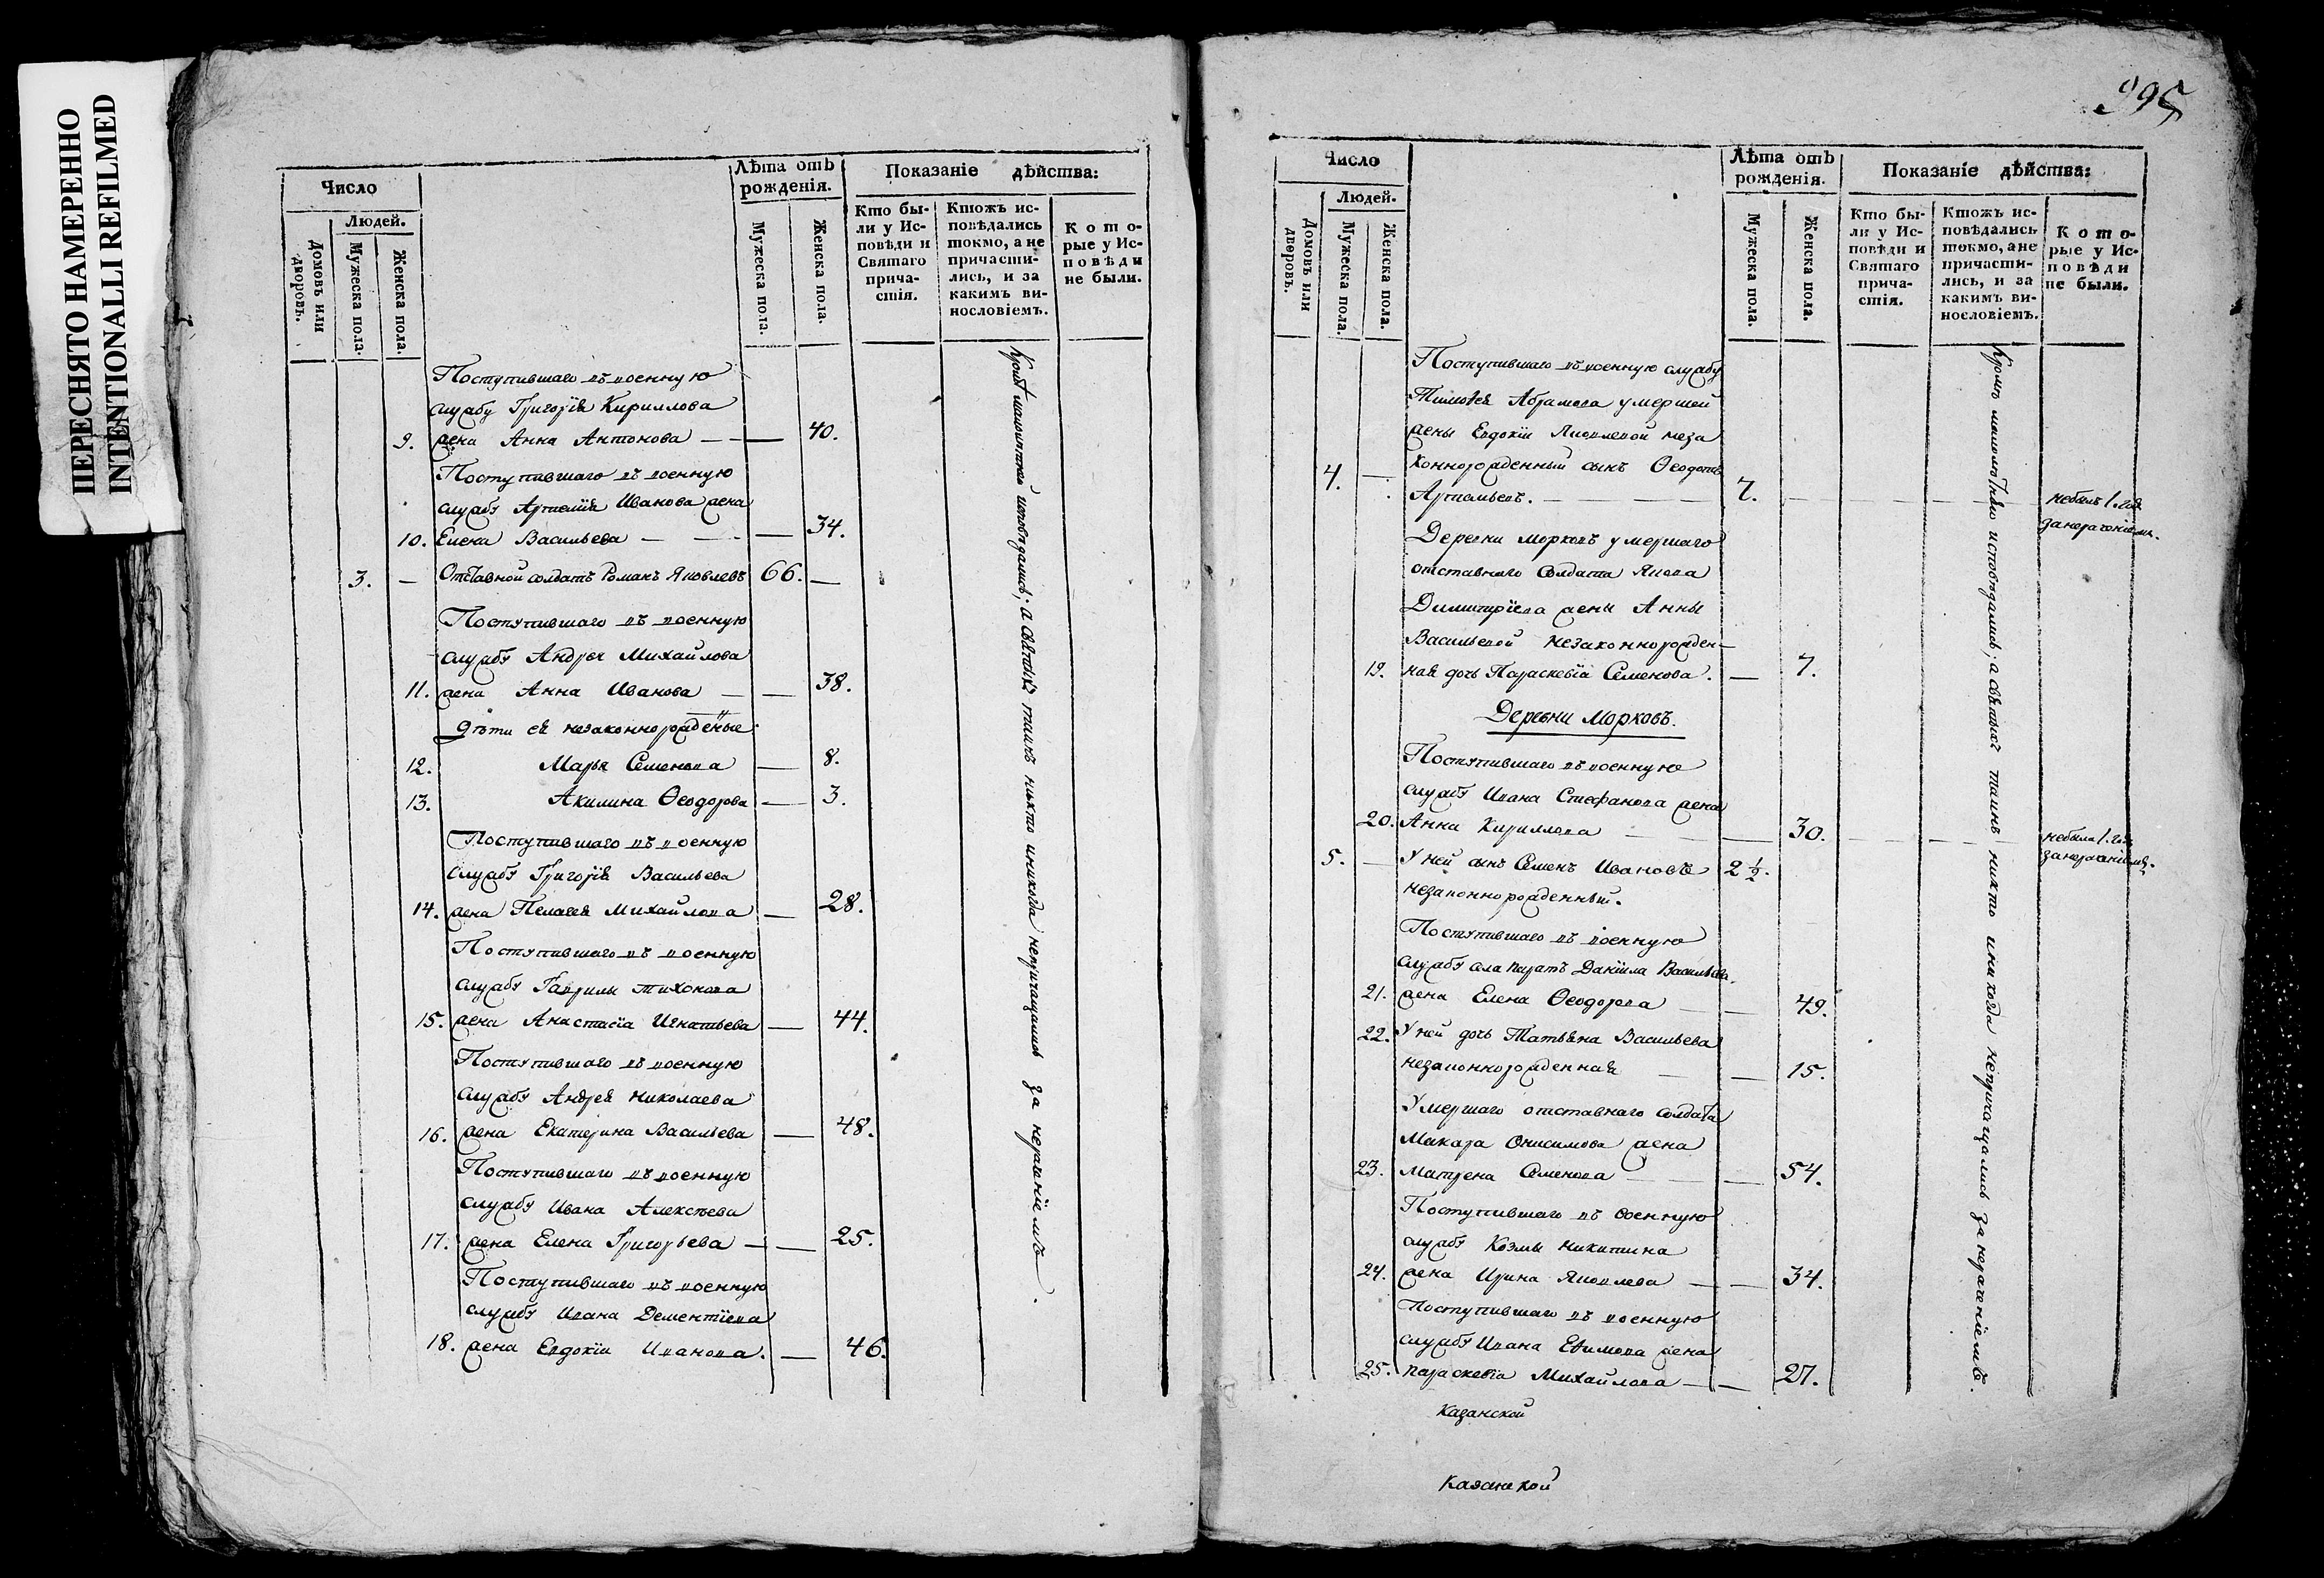 ПЕРЕСНЯТО НАМЕРЕННО
INTENTIONALLI REFILMED
Число
Людей.
Домовъ или дворовъ.
Мужеска пола.
Женска пола.
Лѣта отъ рожденія.
Мужеска пола.
Женска пола.
Показаніе дѣйства:
Кто были у Исповѣди и Святаго причастія.
Ктожъ исповѣдались токмо, а не причастились, и за какимъ винословіемъ.
Которые у Исповѣди не были.
Поступившаго въ военную
службу Григорія Кириллова
9. жена Анна Антонова — — 40.
Поступившаго въ военную
службу Артемія Иванова жена
10. Елена Васильева — — 34.
3. — Отставной солдатъ Романъ Яковлевъ 66. —
Поступившаго въ военную
службу Андрея Михайлова
11. жена Анна Иванова — — 38.
Дѣти ея незаконнорожденные
12. Марья Семенова — 8.
13. Акилина Ѳеодорова — 3.
Поступившаго въ военную
службу Григорія Васильева
14. жена Пелагея Михайлова — 28.
Поступившаго въ военную
службу Гаврилы Тихонова
15. жена Анастасія Игнатьева — 44.
Поступившаго въ военную
службу Андрея Николаева
16. жена Екатерина Васильева — 48.
Поступившаго въ военную
службу Ивана Алексѣева
17. жена Елена Григорьева — — 25.
Поступившаго въ военную
службу Ивана Дементіева
18. жена Евдокіи Иванова. — 46.
Кромѣ малолѣтковъ исповѣдались; а святыхъ таинъ никто и никогда непричащались за нераченіемъ.
995
Число
Людей.
Домовъ или дворовъ.
Мужеска пола.
Женска пола.
Лѣта отъ рожденія.
Мужеска пола.
Женска пола.
Показаніе дѣйства:
Кто были у Исповѣди и Святаго причастія.
Ктожъ исповѣдались токмо, а не причастились, и за какимъ винословіемъ.
Которые у Исповѣди не были.
Поступившаго въ военную службу
Тимоѳея Абрамова умершей
жены Евдокіи Яковлевой неза
коннорожденный сынъ Ѳеодотъ
4. — Артемьевъ. — — — 7. — — — небылъ 1. годъ
за нераченіемъ.
Деревни Морковъ умершаго
отставнаго Солдата Якова
Димитріева жены Анны
Васильевой незаконнорожден-
19. ная дочь Параскевіа Семенова. — 7.
Деревни Морковъ.
Поступившаго въ военную
службу Ивана Стефанова жена
20. Анна Кириллова — — 30. — — небыла 1. годъ
за нераченіемъ.
5. — У ней сынъ Семенъ Ивановъ 2 ½.
незаконнорожденный.
Поступившаго въ военную
службу села Паратъ Даніила Васильева
21. жена Елена Ѳеодорова — — 49.
22. У ней дочь Татьяна Васильева
незаконнорожденная — — 15.
Умершаго отставнаго солдата
Макара Онисимова жена
23. Матрена Семенова — — 54.
Поступившаго въ военную
службу Козмы Никитина
24. жена Ирина Яковлева — — 34.
Поступившаго въ военную
службу Ивана Ефимова жена
25. Параскевіа Михайлова — — 27.
Кромѣ малолѣтковъ исповѣдались; а святыхъ таинъ никто и никогда непричащались за нераченіемъ.
Казанской
Казанской